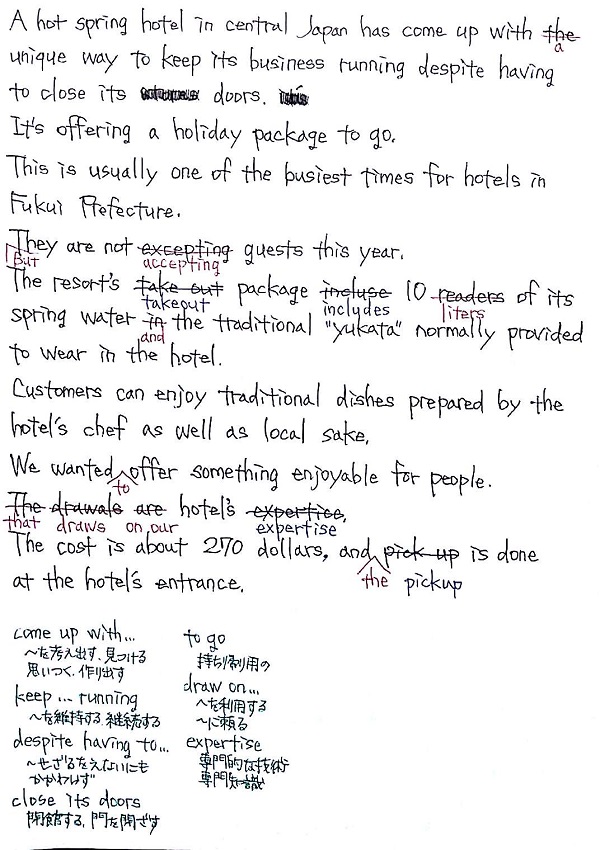 A hot spring hotel in central Japan has come up with the
a
unique way to keep its business running despite having
to close its doors.
It's offering a holiday package to go.
This is usually one of the busiest times for hotels in
Fukui Prefecture.
They are not excepting guests this year.
But accepting
The resort's take out package incluse 10 readers of its
takeout includes liters
spring water in the traditional "yukata" normally provided
and
to wear in the hotel.
Customers can enjoy traditional dishes prepared by the
hotel's chef as well as local sake.
We wanted offer something enjoyable for people.
to
The drawals are hotel's expertice.
that draws on our expertise
The cost is about 270 dollars, and pick up is done
the pickup
at the hotel's entrance.
come up with...
〜を考え出す、見つける
思いつく、作り出す
keep ... running
〜を維持する、継続する
despite having to...
〜せざるをえないにも
かかわらず
close its doors
閉館する、門を閉ざす
to go
持ち帰り用の
draw on...
〜を利用する
〜に頼る
expertise
専門的な技術
専門知識